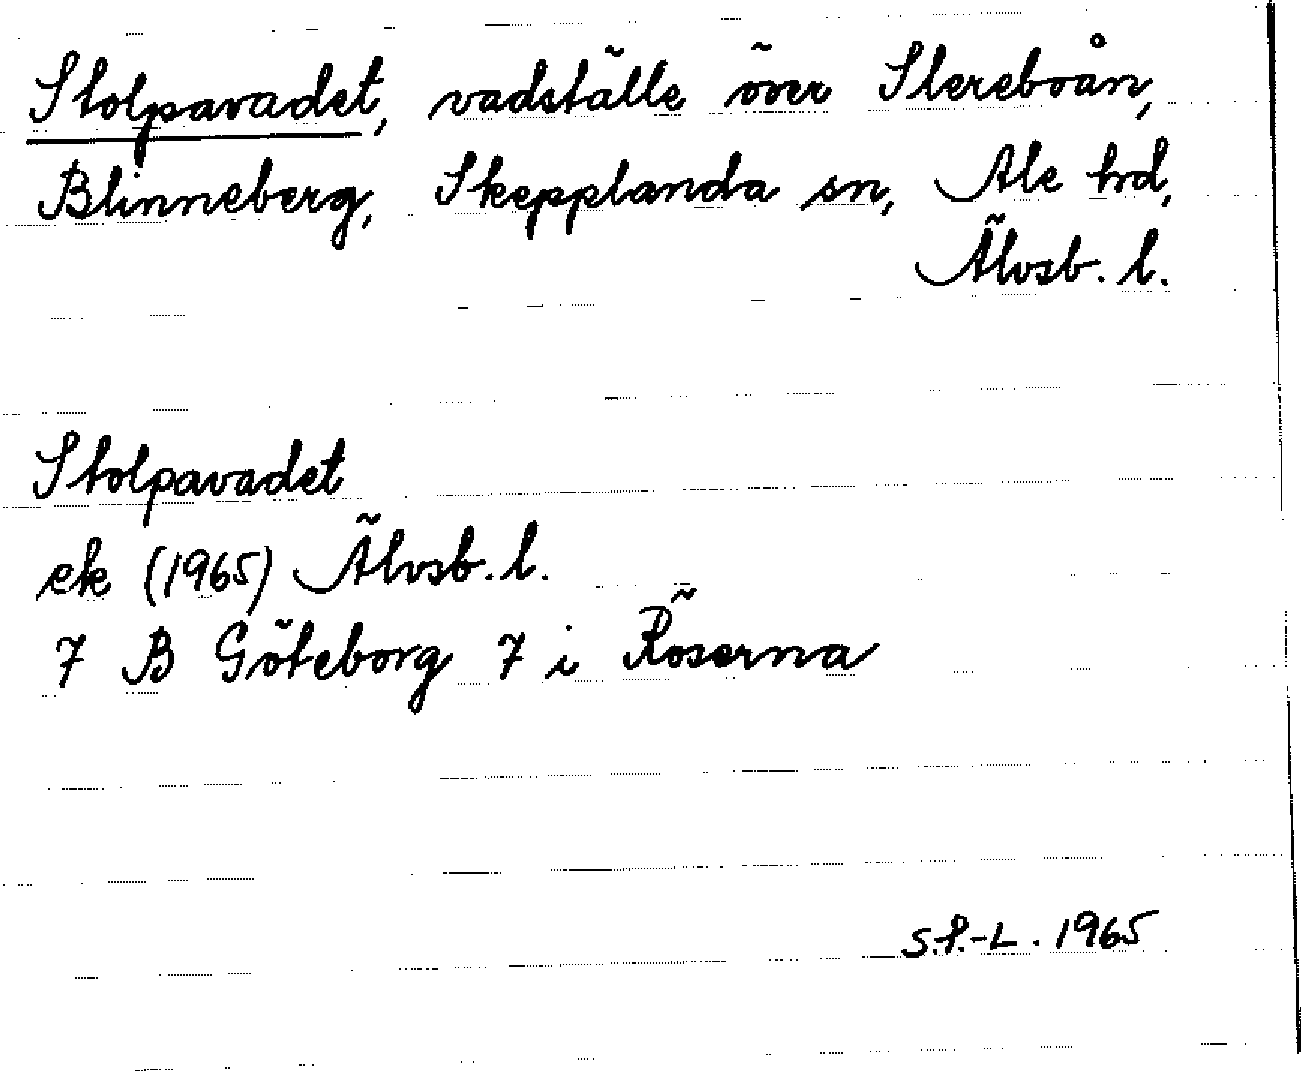 Stolpavadet, vadställe över Slereboån,
Blinneberg, Skepplanda sn, Ale hrd,
Älvsb. l.
Stolpavadet
ek (1965) Älvsb. l.
7 B Göteborg 7 i Röserna
S.P.-L. 1965